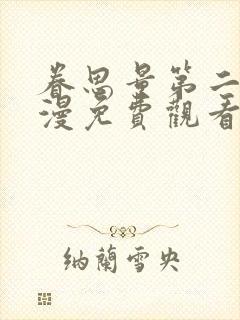 眷思量第二
漫免費觀看
納蘭雪央